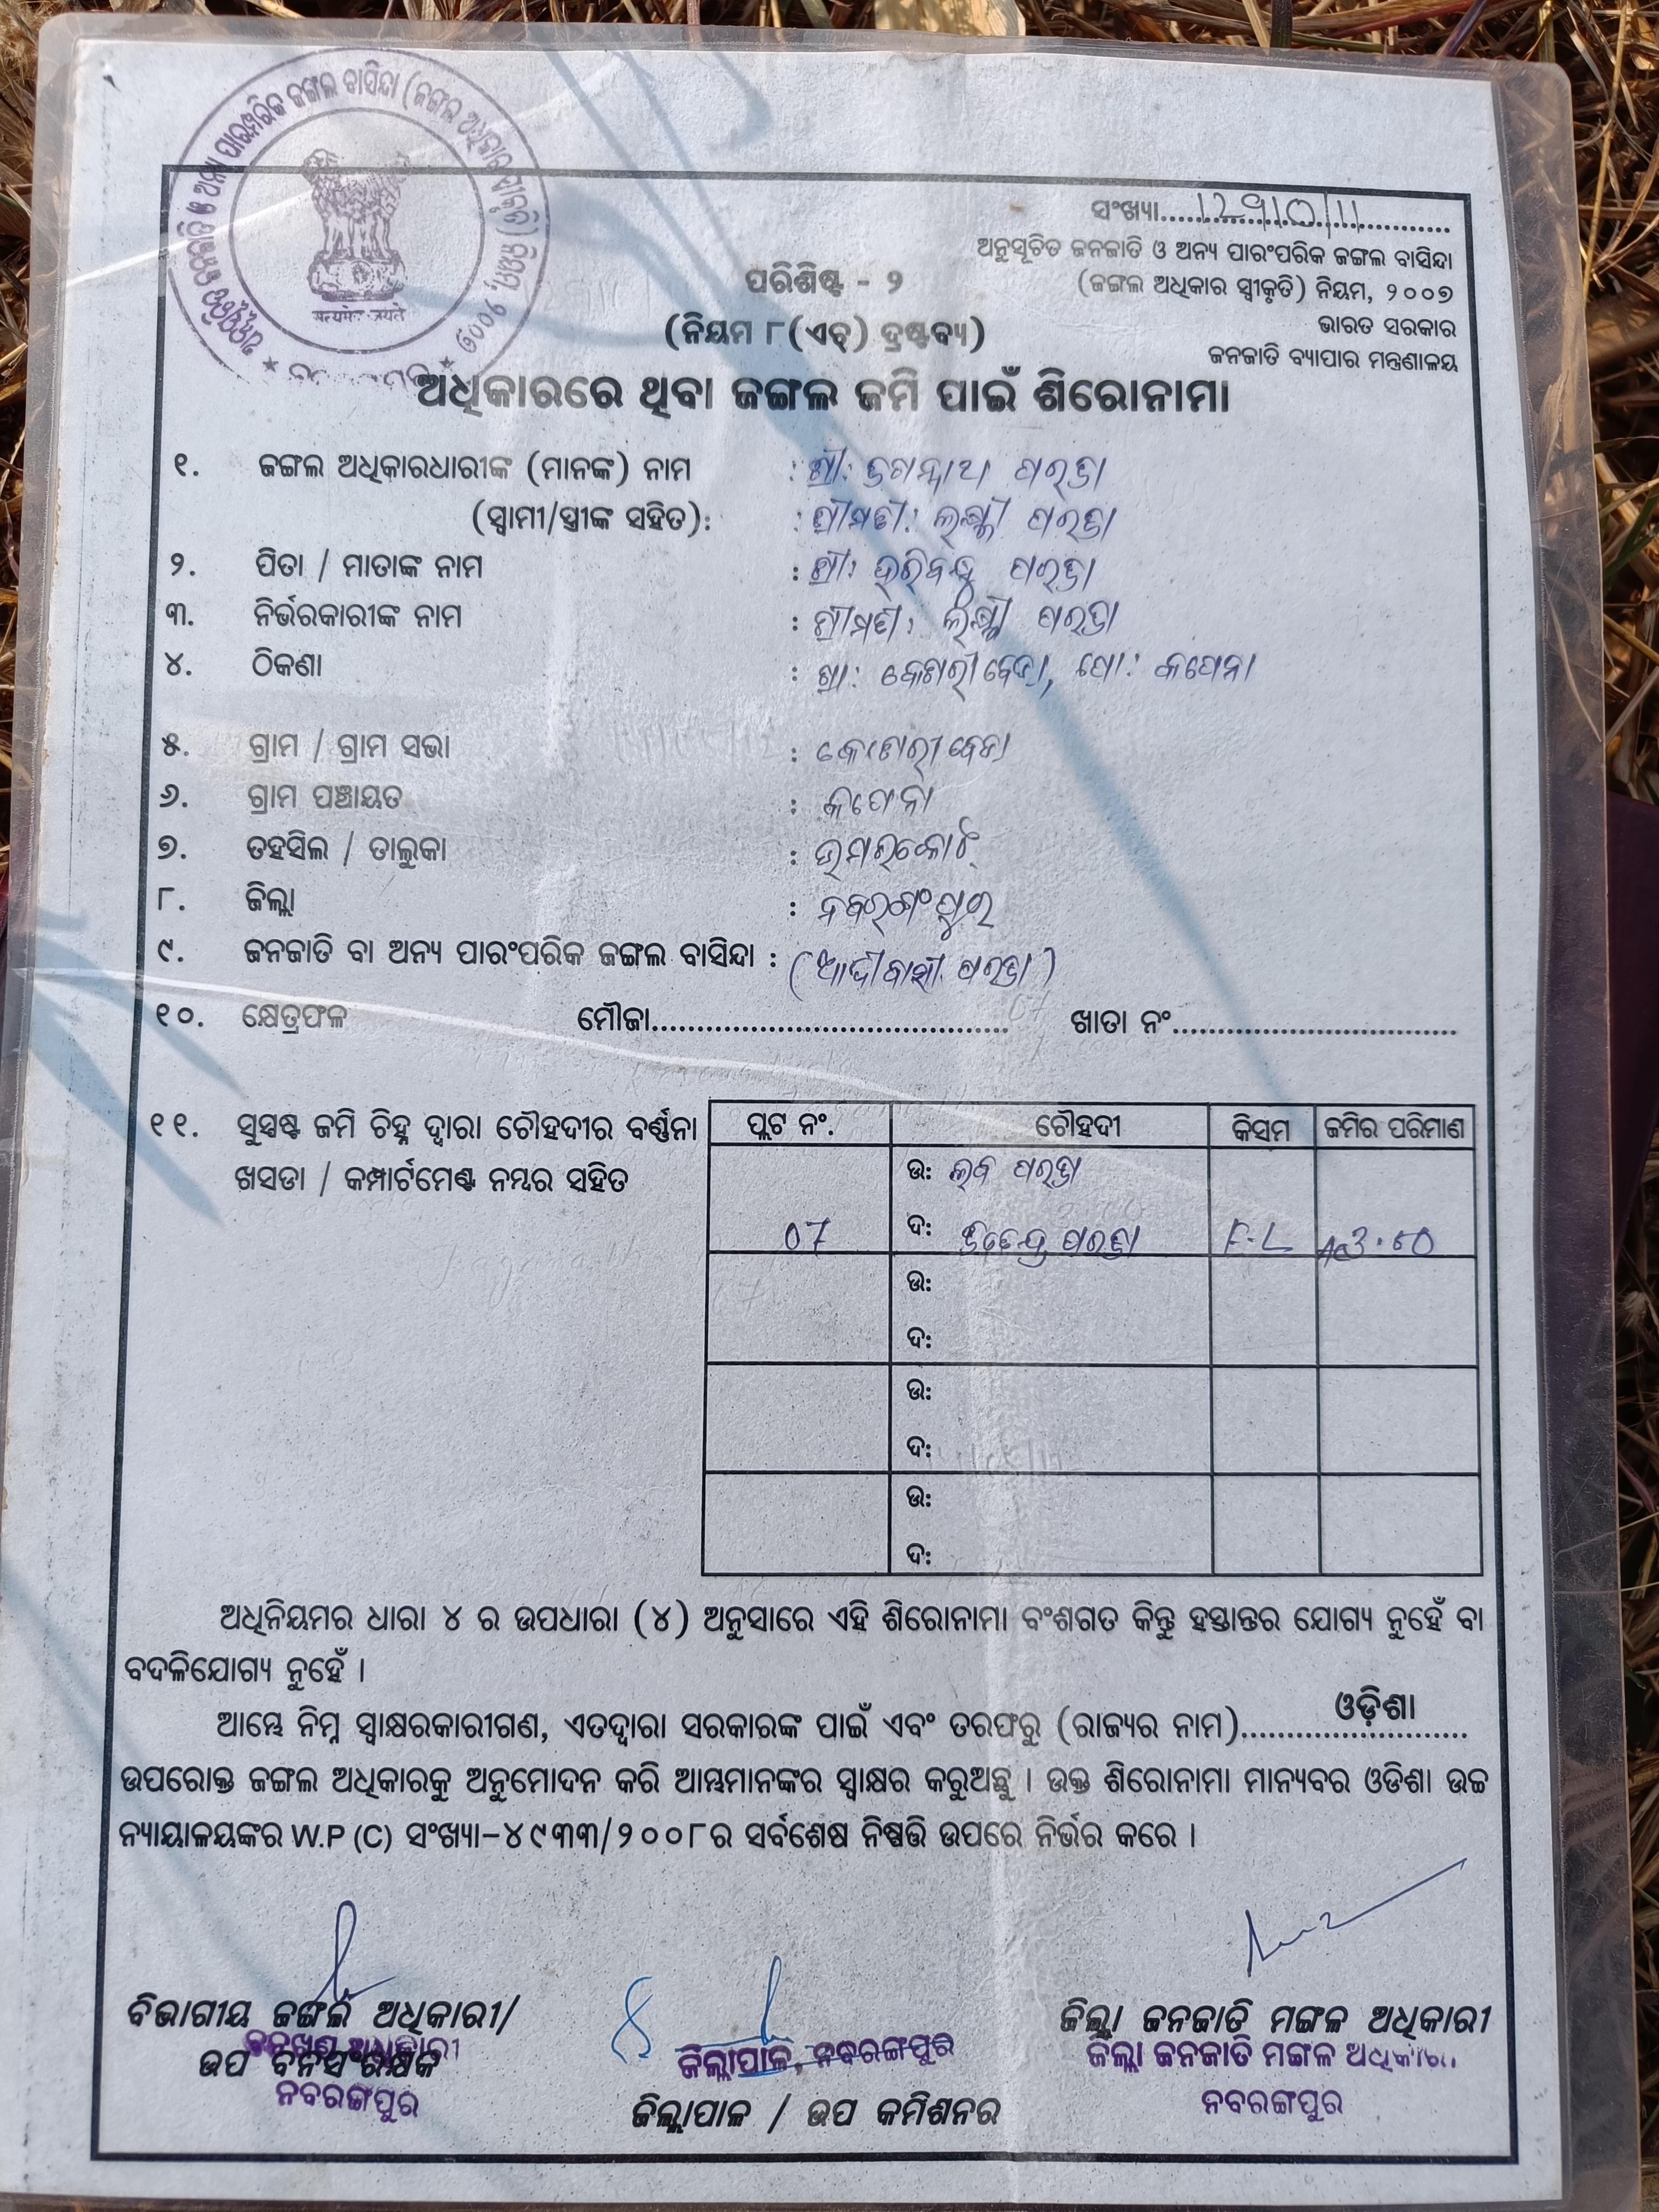 ଅନୁସୂଚିତ ଜନଜାତି ଓ ଅନ୍ୟ ପାରମ୍ପରିକ ଜଙ୍ଗଲ ବାସିନ୍ଦା (ଜଙ୍ଗଲ ଅଧିକାର ସ୍ୱୀକୃତି) ନିୟମ, ୨୦୦୭
सत्यमेव जयते
ସଂଖ୍ୟା
ଅନୁସୂଚିତ ଜନଜାତି ଓ ଅନ୍ୟ ପାରଂପରିକ ଜଙ୍ଗଲ ବାସିନ୍ଦା
ପରିଶିଷ୍ଟ - ୨ (ଜଙ୍ଗଲ ଅଧିକାର ସ୍ୱୀକୃତି) ନିୟମ, ୨୦୦୭
(ନିୟମ ୮(ଏଚ୍) ଦ୍ରଷ୍ଟବ୍ୟ) ଭାରତ ସରକାର
ଜନଜାତି ବ୍ୟାପାର ମନ୍ତ୍ରଣାଳୟ
ଅଧିକାରରେ ଥିବା ଜଙ୍ଗଲ ଜମି ପାଇଁ ଶିରୋନାମା
୧. ଜଙ୍ଗଲ ଅଧିକାରଧାରୀଙ୍କ (ମାନଙ୍କ) ନାମ : ଶ୍ରୀ: ଜଗନ୍ନାଥ ପରଜା
(ସ୍ୱାମୀ/ସ୍ତ୍ରୀଙ୍କ ସହିତ): : ଶ୍ରୀମତୀ: ଲକ୍ଷ୍ମୀ ପରଜା
୨. ପିତା / ମାତାଙ୍କ ନାମ : ଶ୍ରୀ: ହରିବନ୍ଧୁ ପରଜା
୩. ନିର୍ଭରକାରୀଙ୍କ ନାମ : ଶ୍ରୀମତୀ: ଲକ୍ଷ୍ମୀ ପରଜା
୪. ଠିକଣା : ଗ୍ରା: ପୋ: କପେନା
୫. ଗ୍ରାମ / ଗ୍ରାମ ସଭା :
୬. ଗ୍ରାମ ପଞ୍ଚାୟତ : କପେନା
୭. ତହସିଲ / ତାଲୁକା : ଉମରକୋଟ୍
୮. ଜିଲ୍ଲା : ନବରଂଗପୁର
୯. ଜନଜାତି ବା ଅନ୍ୟ ପାରଂପରିକ ଜଙ୍ଗଲ ବାସିନ୍ଦା : (ଆଦୀବାସୀ ପରଜା)
୧୦. କ୍ଷେତ୍ରଫଳ ମୌଜା........................................ ଖାତା ନଂ................................
୧୧. ସୁସ୍ପଷ୍ଟ ଜମି ଚିହ୍ନ ଦ୍ୱାରା ଚୌହଦୀର ବର୍ଣ୍ଣନା ପ୍ଲଟ ନଂ. ଚୌହଦୀ କିସମ ଜମିର ପରିମାଣ
ଖସଡା / କମ୍ପାର୍ଟମେଣ୍ଟ ନମ୍ବର ସହିତ ଉ: ଲବ ପରଜା
07 ଦ: ପରଜା F.L
ଉ:
ଦ:
ଉ:
ଦ:
ଉ:
ଦ:
ଅଧିନିୟମର ଧାରା ୪ ର ଉପଧାରା (୪) ଅନୁସାରେ ଏହି ଶିରୋନାମା ବଂଶଗତ କିନ୍ତୁ ହସ୍ତାନ୍ତର ଯୋଗ୍ୟ ନୁହେଁ ବା
ବଦଳିଯୋଗ୍ୟ ନୁହେଁ ।
ଆମ୍ଭେ ନିମ୍ନ ସ୍ୱାକ୍ଷରକାରୀଗଣ, ଏତଦ୍ୱାରା ସରକାରଙ୍କ ପାଇଁ ଏବଂ ତରଫରୁ (ରାଜ୍ୟର ନାମ).........ଓଡ଼ିଶା.........
ଉପରୋକ୍ତ ଜଙ୍ଗଲ ଅଧିକାରକୁ ଅନୁମୋଦନ କରି ଆମ୍ଭମାନଙ୍କର ସ୍ୱାକ୍ଷର କରୁଅଛୁ । ଉକ୍ତ ଶିରୋନାମା ମାନ୍ୟବର ଓଡିଶା ଉଚ୍ଚ
ନ୍ୟାୟାଳୟଙ୍କର W.P (C) ସଂଖ୍ୟା–୪୯୩୩/୨୦୦୮ର ସର୍ବଶେଷ ନିଷ୍ପତ୍ତି ଉପରେ ନିର୍ଭର କରେ ।
ବିଭାଗୀୟ ଜଙ୍ଗଲ ଅଧିକାରୀ/ ଜିଲ୍ଲା ଜନଜାତି ମଙ୍ଗଳ ଅଧିକାରୀ
ବନଖଣ୍ଡ ଅଧିକାରୀ ଜିଲ୍ଲାପାଳ, ନବରଙ୍ଗପୁର ଜିଲ୍ଲା ଜନଜାତି ମଙ୍ଗଳ ଅଧିକାରୀ
ଉପ ବନସଂରକ୍ଷକ
ନବରଙ୍ଗପୁର ଜିଲ୍ଲାପାଳ / ଉପ କମିଶନର ନବରଙ୍ଗପୁର